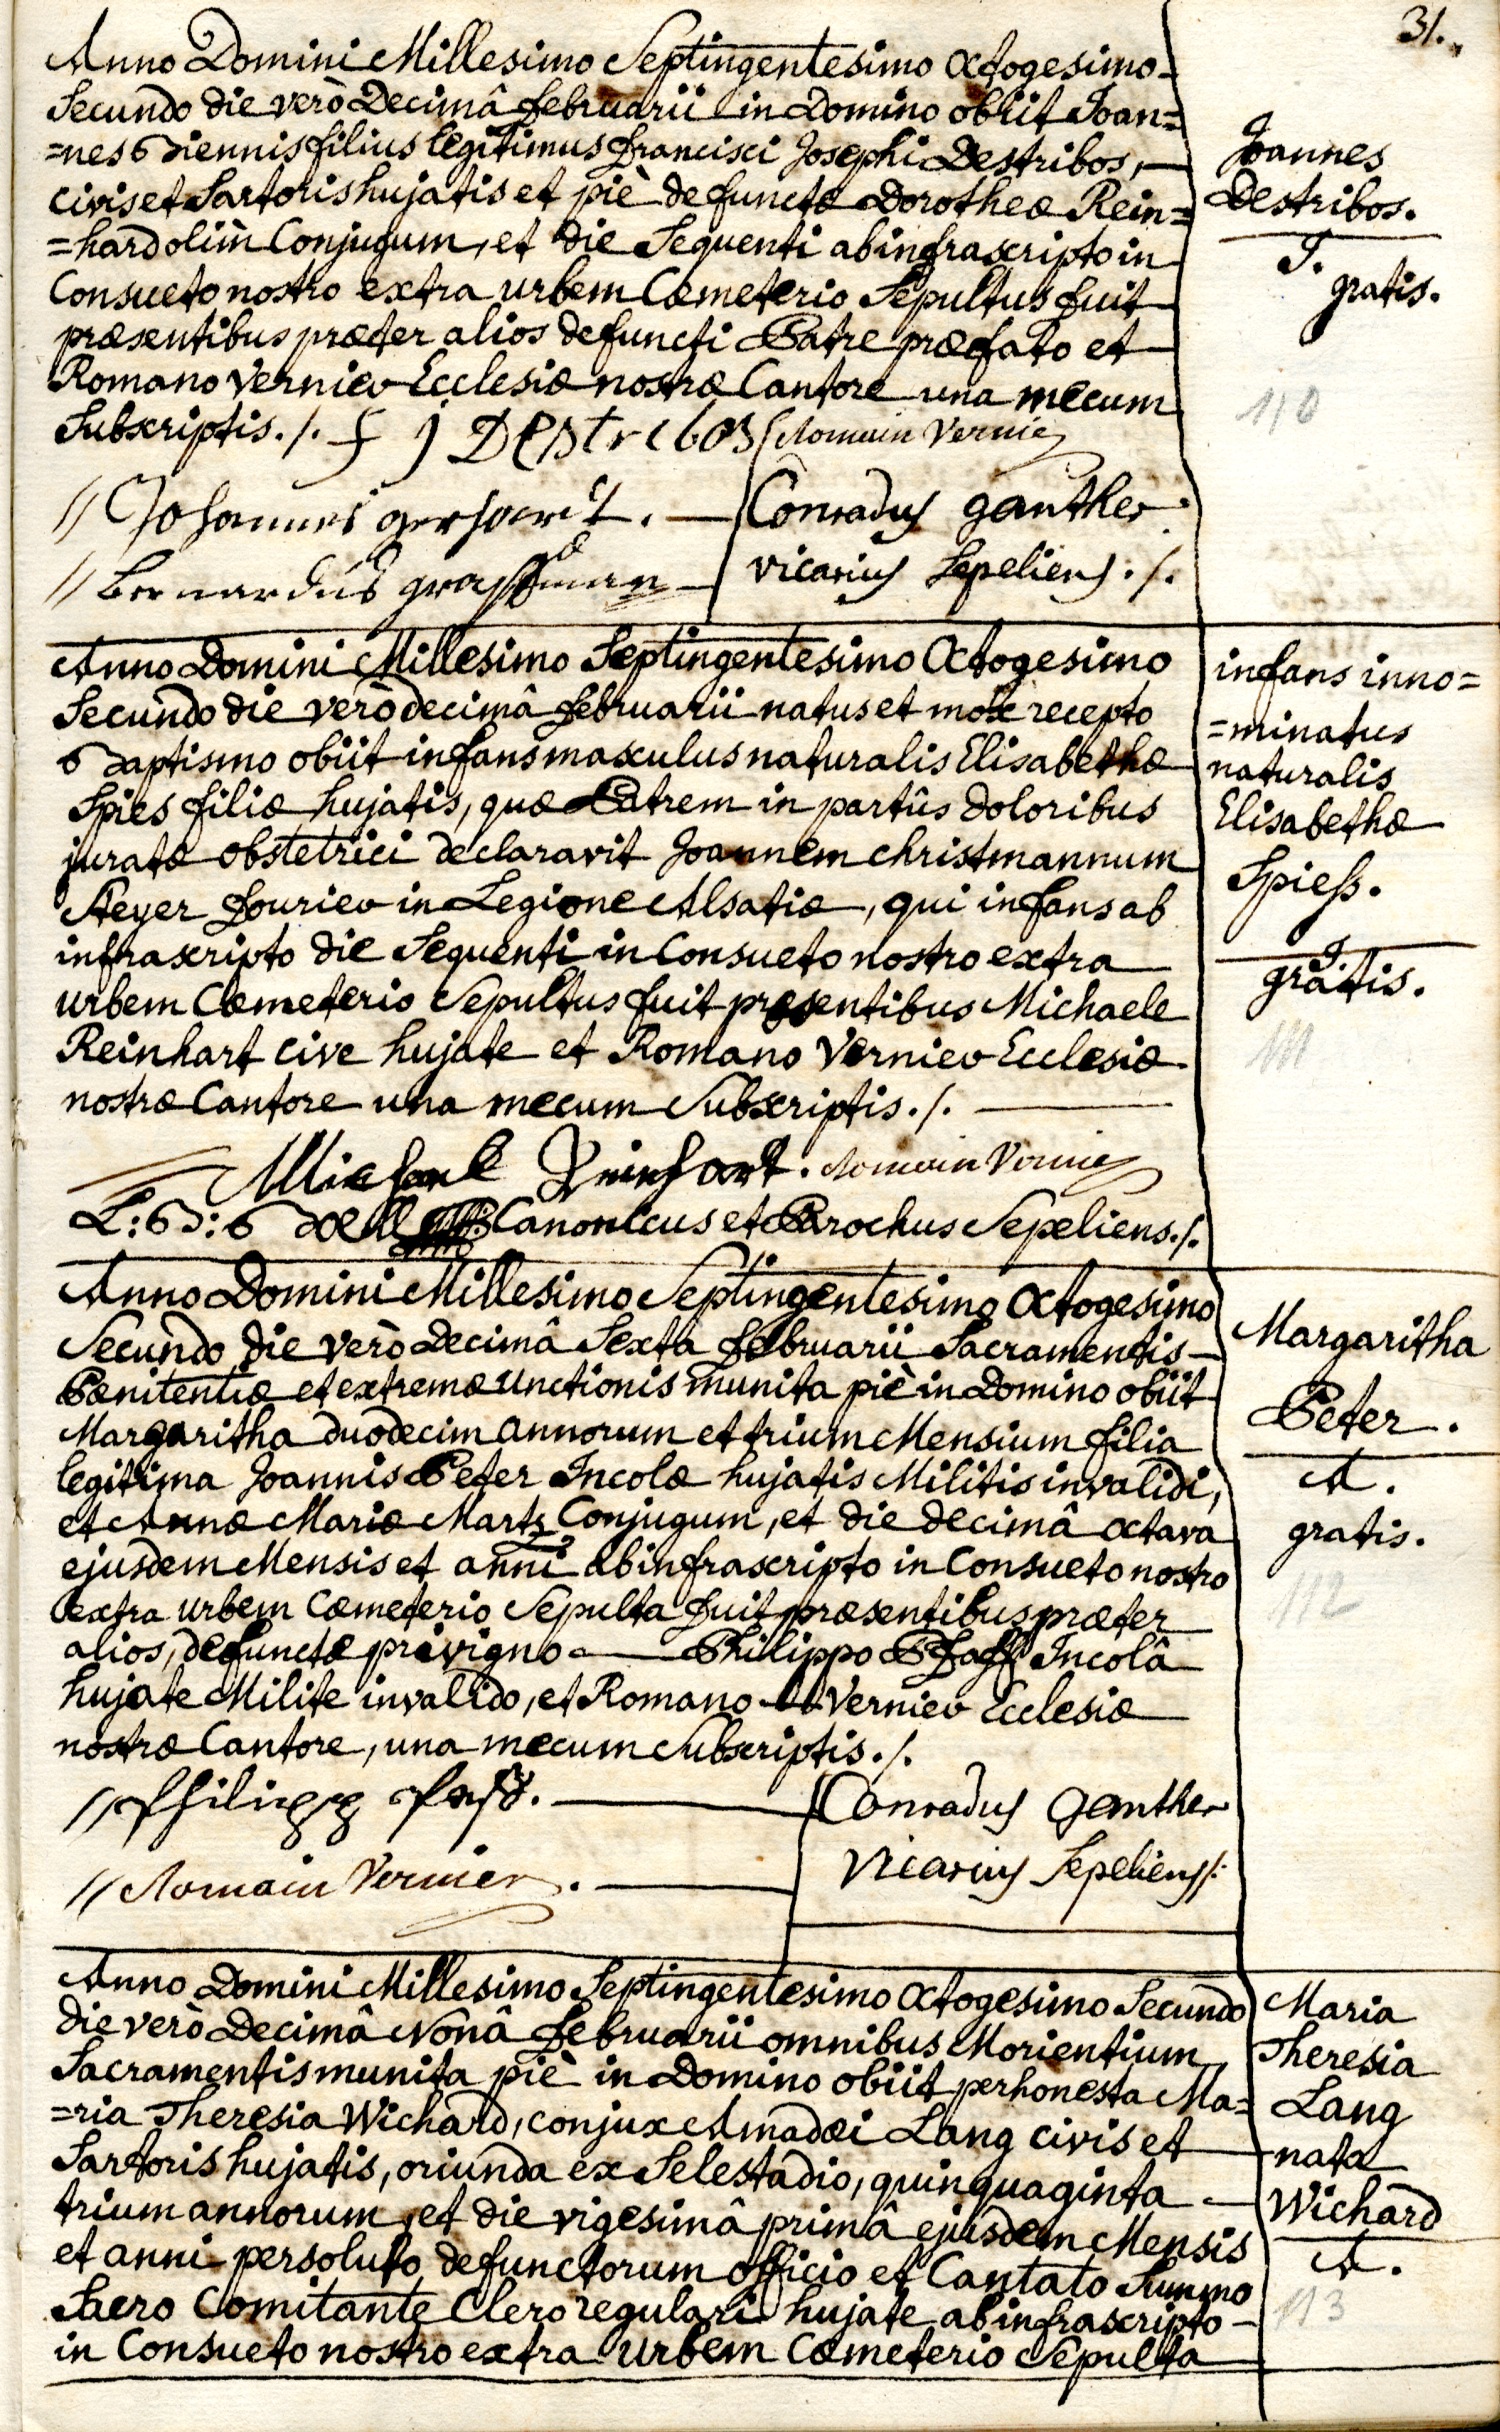 31.
Anno Domini Millesimo Septingentesimo Octogesimo-
Secundo die verò Decimâ februarii in Domino obiit Joan=
=nes biennis filius legitimus francisci Josephi Destribos,
civis et Sartoris hujatis et piè defunctæ Dorotheæ Rein=
=hard olim Conjugum, et die Sequenti ab infrascripto in
Consueto nostro extra urbem Cœmeterio Sepultus fuit
præsentibus præter alios defuncti Patre præfato et
Romano Vernier Ecclesiæ nostræ Cantore una mecum
Subscriptis./. f j Destribos Romain Vernier
// Johannes
Conradus ganther
// Bernardus
vicarius Sepeliens./.
Joannes
Destribos.
J.
gratis.
110
Anno Domini Millesimo Septingentesimo Octogesimo
Secundo die verò decimâ februarii natus et mox recepto
baptismo obiit infans masculus naturalis Elisabethæ
Spies filiæ hujatis, quæ Patrem in partûs doloribus
juratæ obstetrici declaravit Joannem christmannum
Steyer fourier in Legione Alsatiæ, qui infans ab
infrascripto die Sequenti in Consueto nostro extra
urbem Cœmeterio Sepultus fuit præsentibus Michaele
Reinhart cive hujate et Romano Vernier Ecclesiæ
nostræ Cantore una mecum Subscriptis./.
Michael Reinhart. Romain Vernier
L:B: Canonicus et Parochus Sepeliens./.
infans inno=
=minatus
naturalis
Elisabethæ
Spieß.
J.
gratis.
111
Anno Domini Millesimo Septingentesimo Octogesimo
Secundo die verò Decimâ Sexta februarii Sacramentis
Pœnitentiæ et extremæ unctionis munita piè in Domino obiit
Margaritha duodecim annorum et trium Mensium filia
legitima Joannis Peter Incolæ hujatis Militis invalidi,
et Annæ Mariæ Martz Conjugum, et die decimâ octava
ejusdem Mensis et anni ab infrascripto in Consueto nostro
extra urbem Cœmeterio Sepulta fuit præsentibus præter
alios, defunctæ privigno Philippo Pfaff Incolâ
hujate Milite invalido, et Romano Vernier Ecclesiæ
nostræ Cantore, una mecum Subscriptis./.
// Philipp
Conradus Ganther
// Romain Vernier.
Vicarius Sepeliens/.
Margaritha
Peter.
A.
gratis.
112
Anno Domini Millesimo Septingentesimo Octogesimo Secundo
die verò Decimâ Nonâ februarii omnibus Morientium
Sacramentis munita piè in Domino obiit perhonesta Ma=
=ria Theresia Wichard, conjux Amadæi Lang civis et
Sartoris hujatis, oriunda ex Selestadio, quinquaginta
trium annorum, et die vigesimâ primâ ejusdem Mensis
et anni persoluto defunctorum officio et Cantato Summo
Sacro Comitante Clero regulari hujate ab infrascripto
in Consueto nostro extra urbem Cœmeterio Sepulta
Maria
Theresia
Lang
nata
Wichard
A.
113